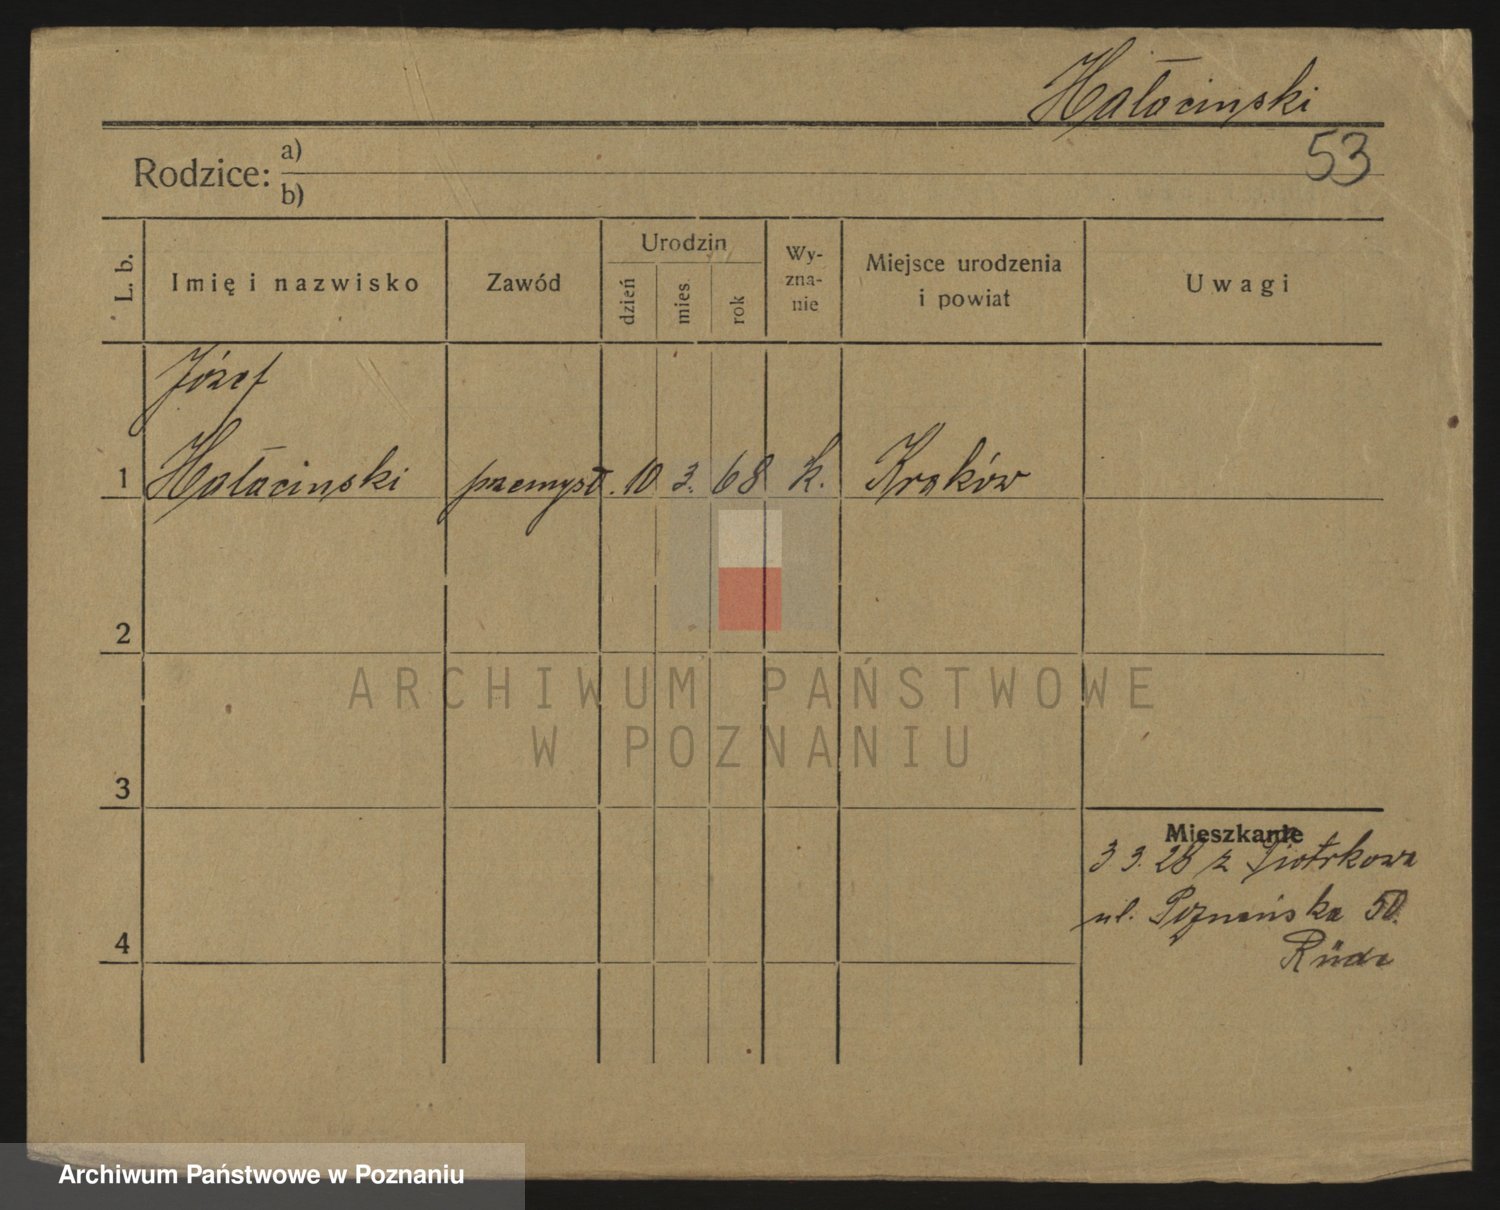 Hałacinski
53
Rodzice: a)
b)
L. b. Imię i nazwisko Zawód Urodzin dzień mies. rok Wy-zna-nie Miejsce urodzenia i powiat Uwagi
Józef
1 Hałacinski przemysł. 10 3. 68 k. Kraków
2
ARCHIWUM PAŃSTWOWE
W POZNANIU
3
Mieszkanie
3 3. 28 z Piotrkowa
ul. Poznańska 50.
4
Archiwum Państwowe w Poznaniu